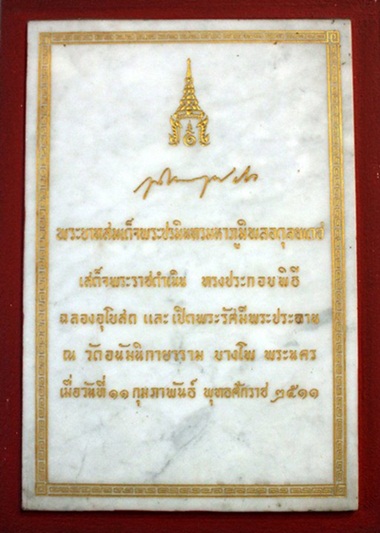 พระบาทสมเด็จพระปรมินทรมหาภูมิพลอดุลยเดช
เสด็จพระราชดำเนิน ทรงประกอบพิธี
ฉลองอุโบสถ และ เปิดพระรัศมีพระประธาน
ณ วัดอนัมนิกายาราม บางโพ พระนคร
เมื่อวันที่ ๑๑ กุมภาพันธ์ พุทธศักราช ๒๕๑๑